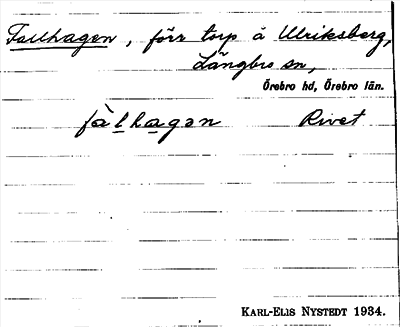 Fallhagen, förr torp å Ulriksberg,
Längbro sn,
Örebro hd, Örebro län.
fàlhagən Rivet
KARL-ELIS NYSTEDT 1934.